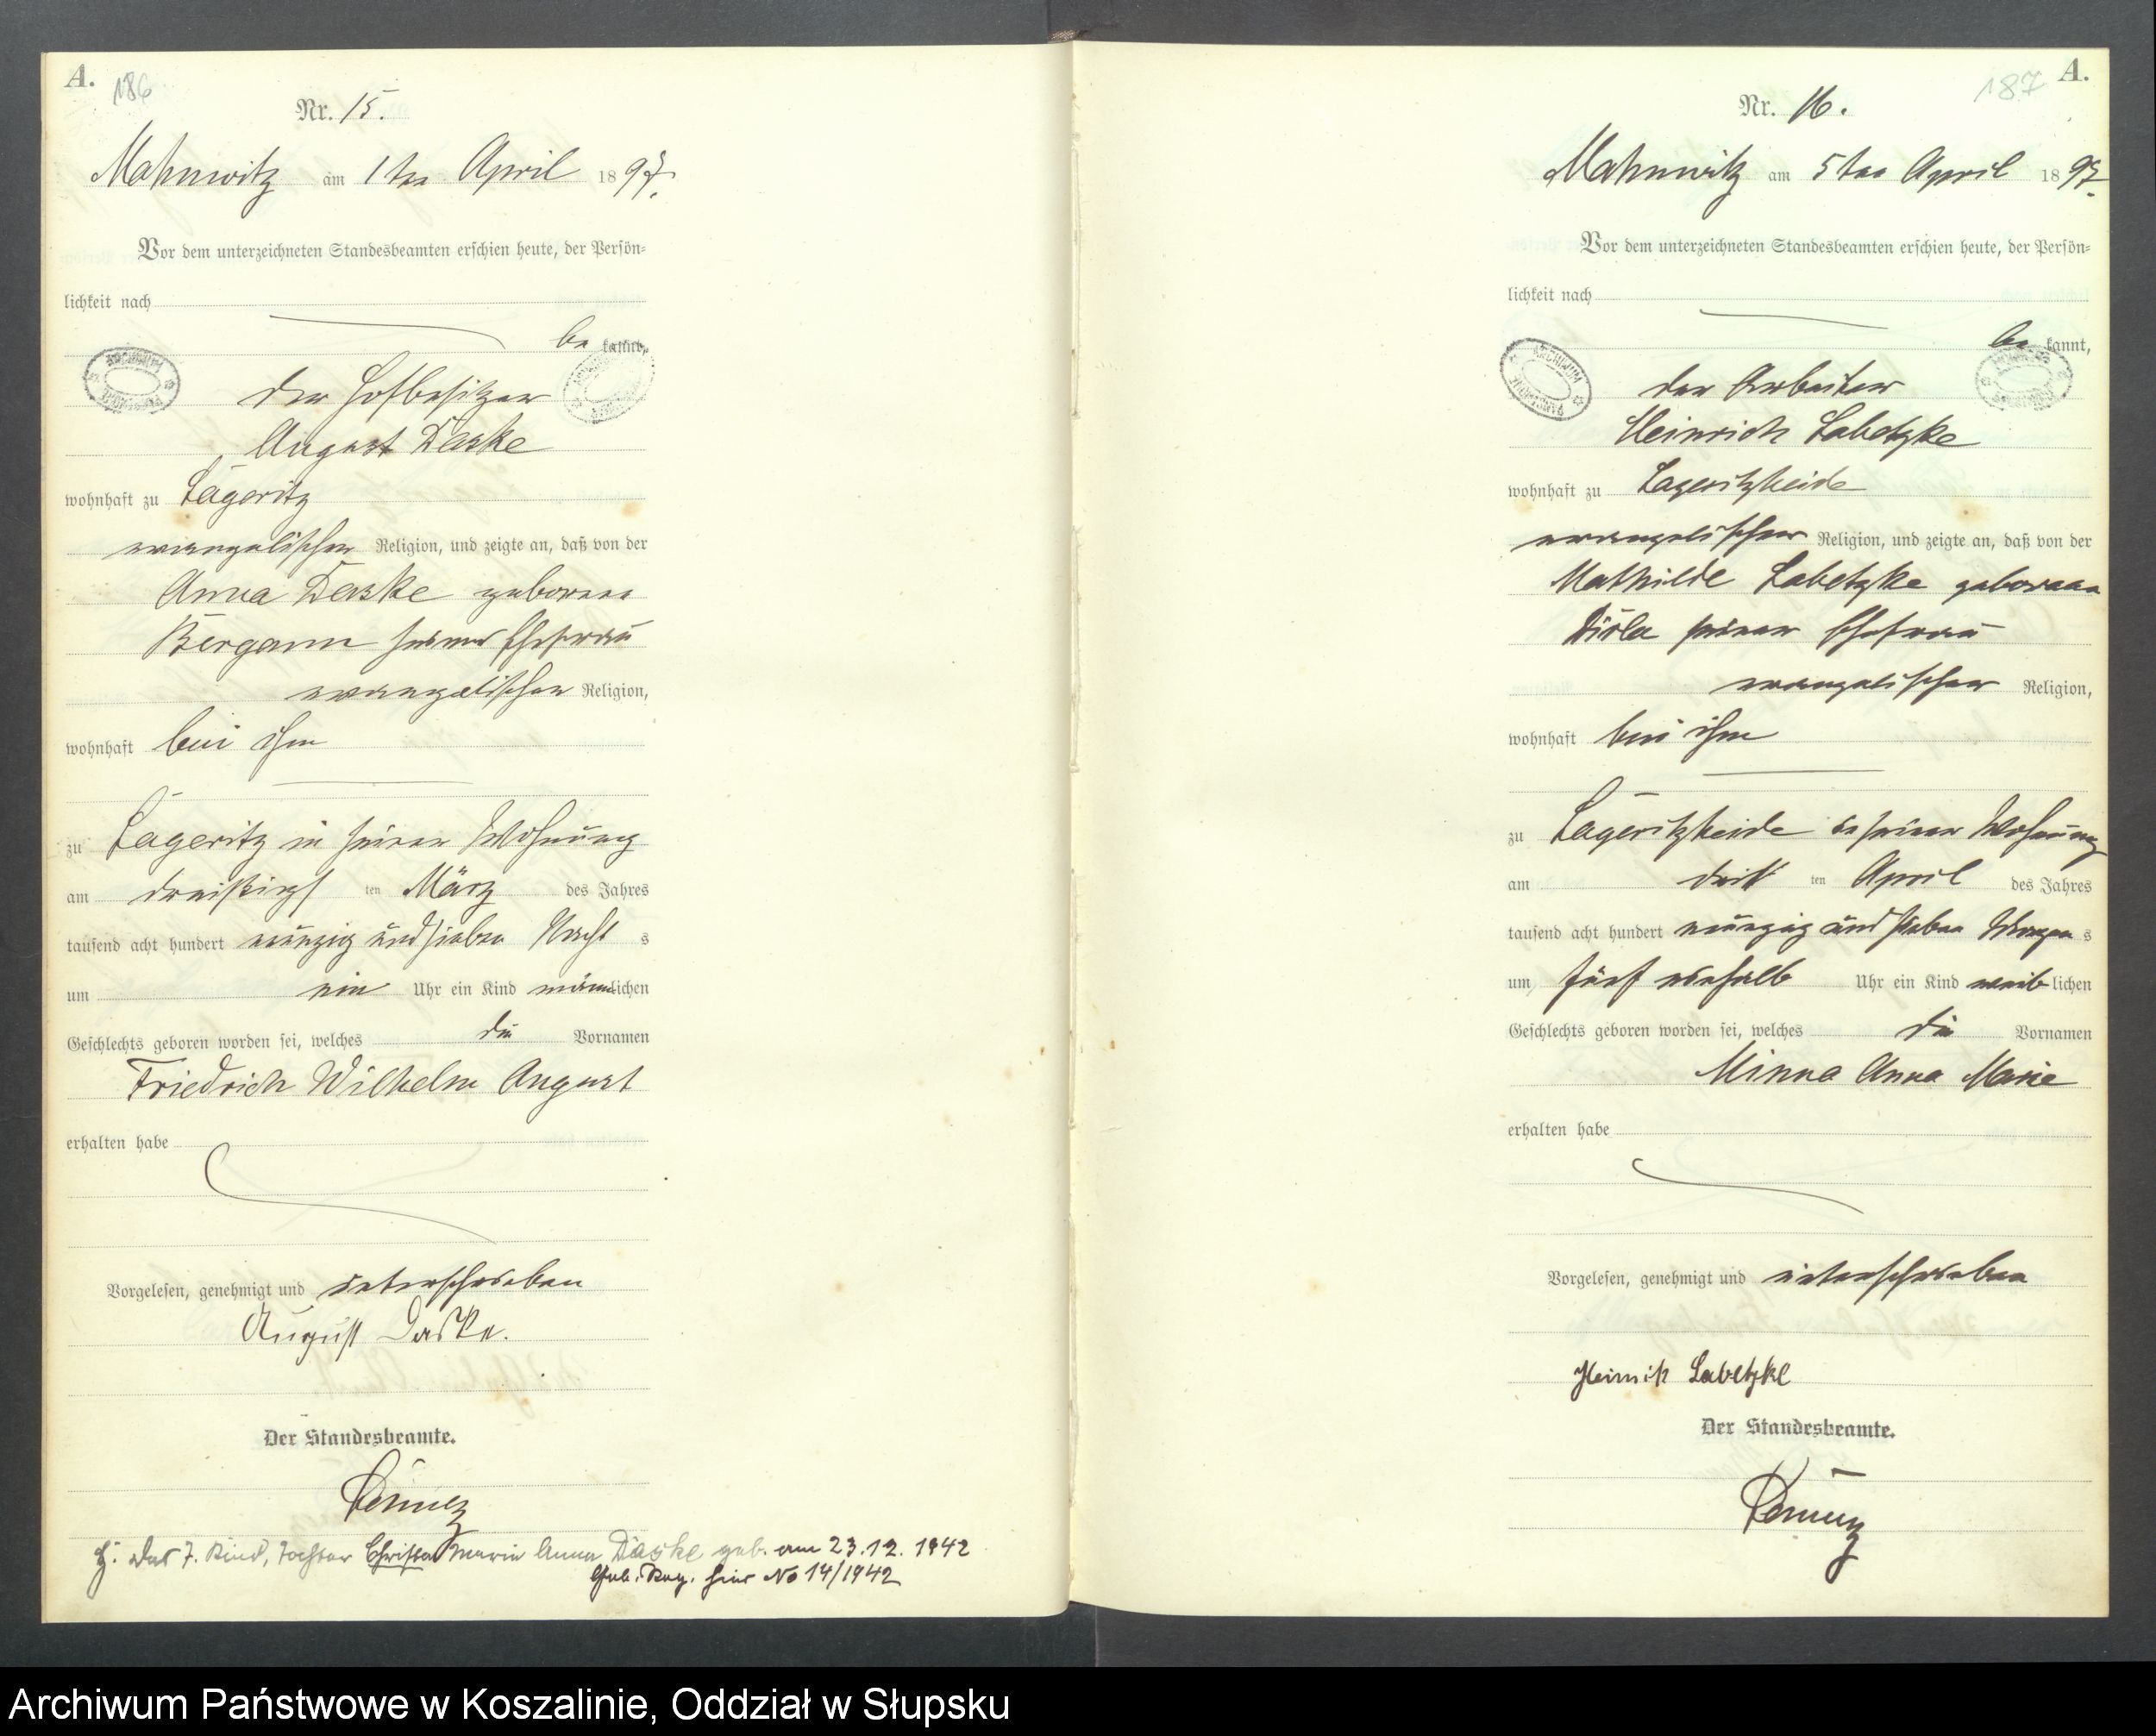 A.
186
Nr. 15.
Mahnwitz am 1ten April 1897.
Vor dem unterzeichneten Standesbeamten erschien heute, der Persön-
lichkeit nach
be kannt,
der Hofbesitzer
August Daske
wohnhaft zu Lägeritz
evangelischer Religion, und zeigte an, daß von der
Anna Daske geborene
Bergann seiner Ehefrau
evangelischer Religion,
wohnhaft bei ihm
zu Lägeritz in seiner Wohnung
am dreißigst ten März des Jahres
tausend acht hundert neunzig und sieben Nacht s
um ein Uhr ein Kind männlichen
Geschlechts geboren worden sei, welches die Vornamen
Friedrich Wilhelm August
erhalten habe
Vorgelesen, genehmigt und unterschrieben
August Daske.
Der Standesbeamte.
H: das 7. Kind, Tochter Christa Marie Anna Daske geb. am 23.12.1942
Geb. Reg. hier No 14/1942
A.
187
Nr. 16.
Mahnwitz am 5ten April 1897.
Vor dem unterzeichneten Standesbeamten erschien heute, der Persön-
lichkeit nach
be kannt,
der Arbeiter
Heinrich Labetzke
wohnhaft zu Lageritzheide
evangelischer Religion, und zeigte an, daß von der
Mathilde Labetzke geborenen
seiner Ehefrau
evangelischer Religion,
wohnhaft bei ihm
zu Lägeritzheide in seiner Wohnung
am dritt ten April des Jahres
tausend acht hundert neunzig und sieben Morgen s
um fünf einhalb Uhr ein Kind weiblichen
Geschlechts geboren worden sei, welches die Vornamen
Minna Anna Marie
erhalten habe
Vorgelesen, genehmigt und unterschrieben
Heinrich Labetzke
Der Standesbeamte.
Archiwum Państwowe w Koszalinie, Oddział w Słupsku